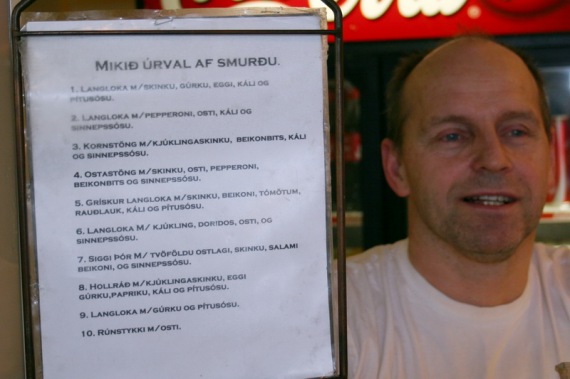 Coca-Cola
MIKIÐ ÚRVAL AF SMURÐU.
1. LANGLOKA M/SKINKU, GÚRKU, EGGI, KÁLI OG
PÍTUSÓSU.
2. LANGLOKA M/PEPPERONI, OSTI, KÁLI OG
SINNEPSSÓSU.
3. KORNSTÖNG M/KJÚKLINGASKINKU, BEIKONBITS, KÁLI
OG SINNEPSSÓSU.
4. OSTASTÖNG M/SKINKU, OSTI, PEPPERONI,
BEIKONBITS OG SINNEPSSÓSU.
5. GRÍSKUR LANGLOKA M/SKINKU, BEIKONI, TÓMÖTUM,
RAUÐLAUK, KÁLI OG PÍTUSÓSU.
6. LANGLOKA M/ KJÚKLING, DORIDOS, OSTI, OG
SINNEPSSÓSU.
7. SIGGI ÞÓR M/ TVÖFÖLDU OSTLAGI, SKINKU, SALAMI
BEIKONI, OG SINNEPSSÓSU.
8. HOLLRÁÐ M/KJÚKLINGASKINKU, EGGI
GÚRKU,PAPRIKU, KÁLI OG PÍTUSÓSU.
9. LANGLOKA M/GÚRKU OG PÍTUSÓSU.
10. RÚNSTYKKI M/OSTI.